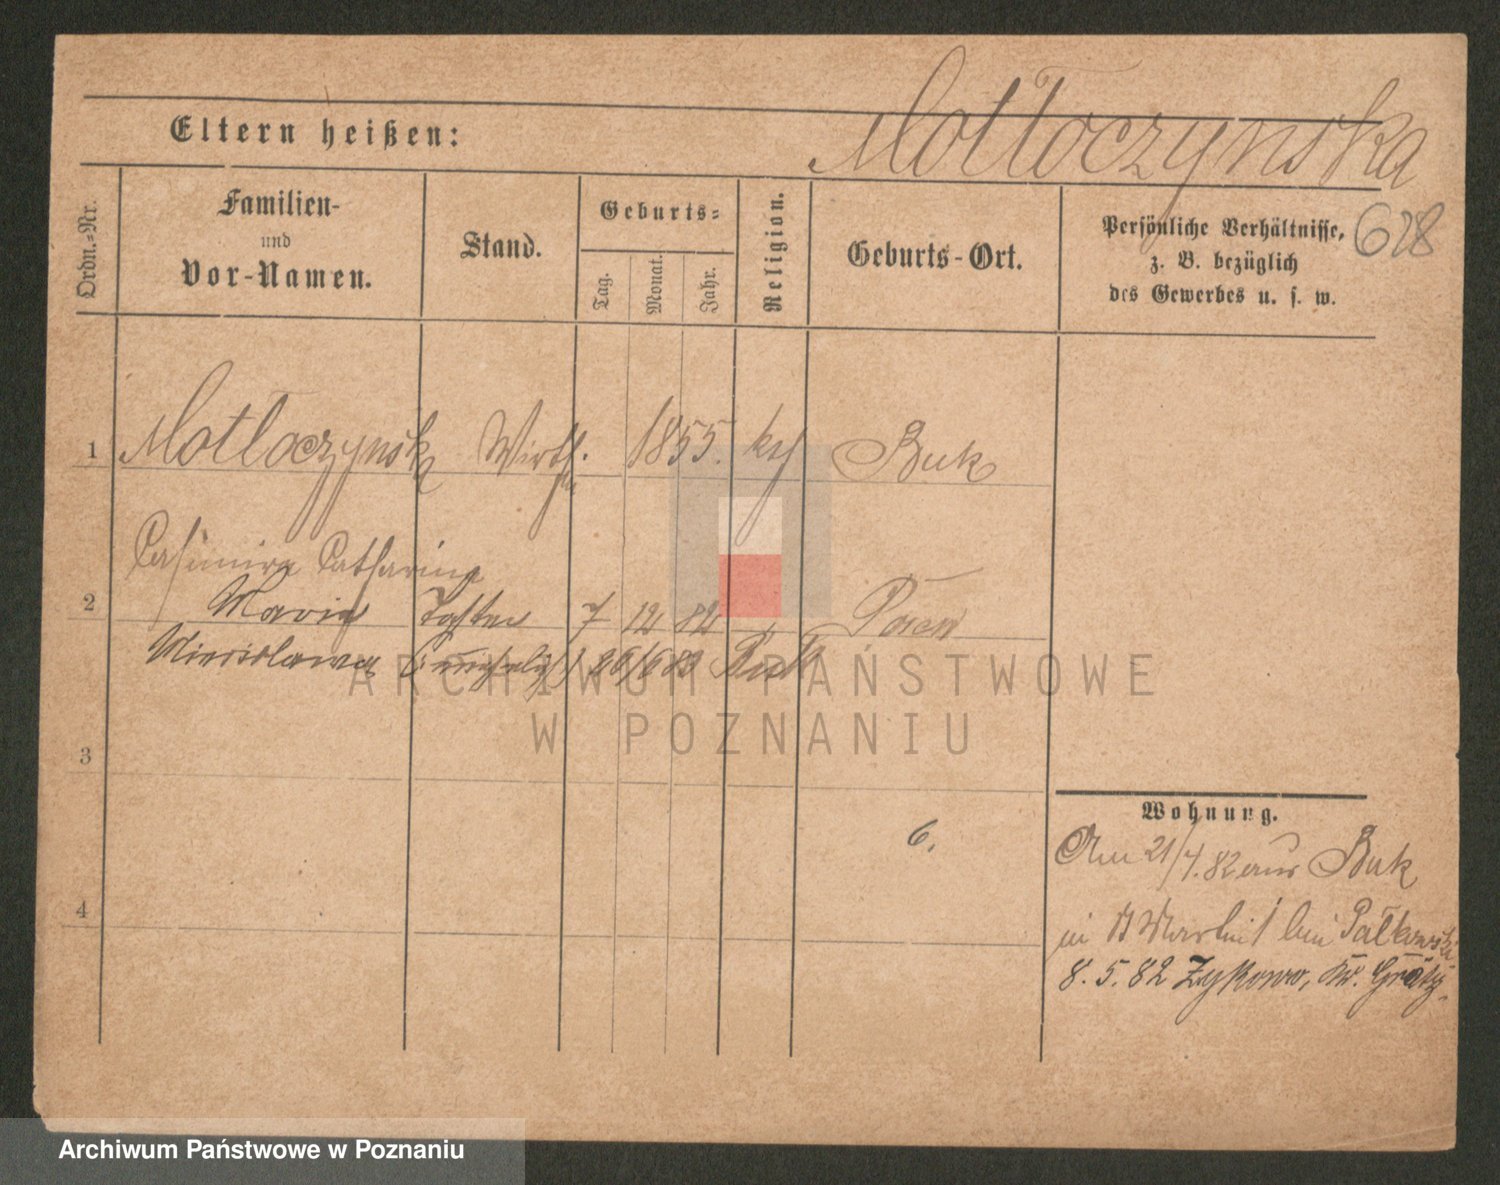 Motłoczynska
Eltern heißen:
628
Ordn.-Nr.
Familien-
und
Vor-Namen.
Stand.
Geburts-
Tag.
Monat.
Jahr.
Religion.
Geburts-Ort.
Persönliche Verhältnisse,
z. B. bezüglich
des Gewerbes u. s. w.
1 Motłoczynska Wirth. 1855. kth Buk
Casimira Catharina
2 Maria Tochter 7 12 82 Posen
Mierislawa 26/6 83 Buk
ARCHIWUM PAŃSTWOWE
W POZNANIU
3
6.
4
Wohnung.
Am 21/4. 82 aus Buk
in St Martin 1 bei
8. 5. 82 Zykowo, Kr. Grätz.
Archiwum Państwowe w Poznaniu